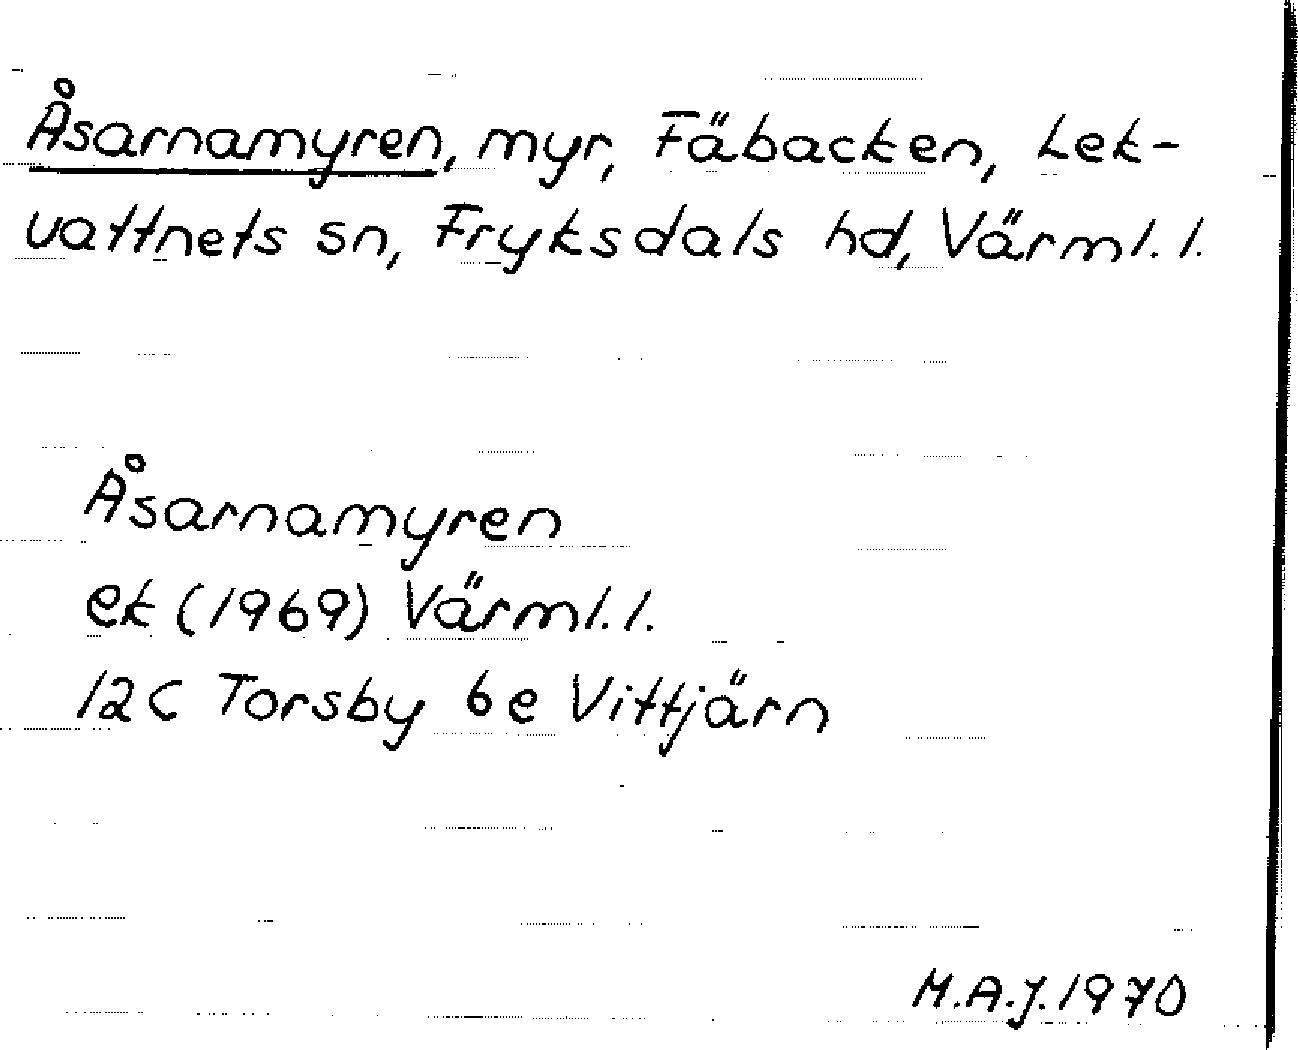 Åsarnamyren, myr, Fäbacken, Lek-
vattnets sn, Fryksdals hd, Värml. l.
Åsarnamyren
ek (1969) Värml. l.
12C Torsby 6e Vittjärn
M.A.J. 1970